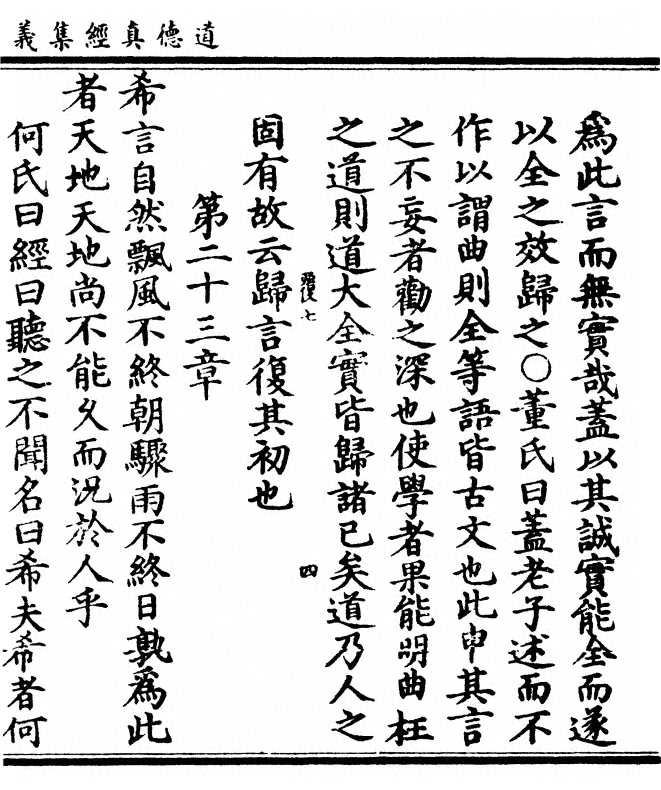 道德真經集義
爲此言而無實哉蓋以其誠實能全而遂
以全之效歸之○董氏曰蓋老子述而不
作以謂曲則全等語皆古文也此申其言
之不妄者勸之深也使學者果能明曲枉
之道則道大全實皆歸諸已矣道乃人之
四
固有故云歸言復其初也
第二十三章
希言自然飄風不終朝驟雨不終日孰爲此
者天地天地尚不能久而況於人乎
何氏曰經曰聽之不聞名曰希夫希者何